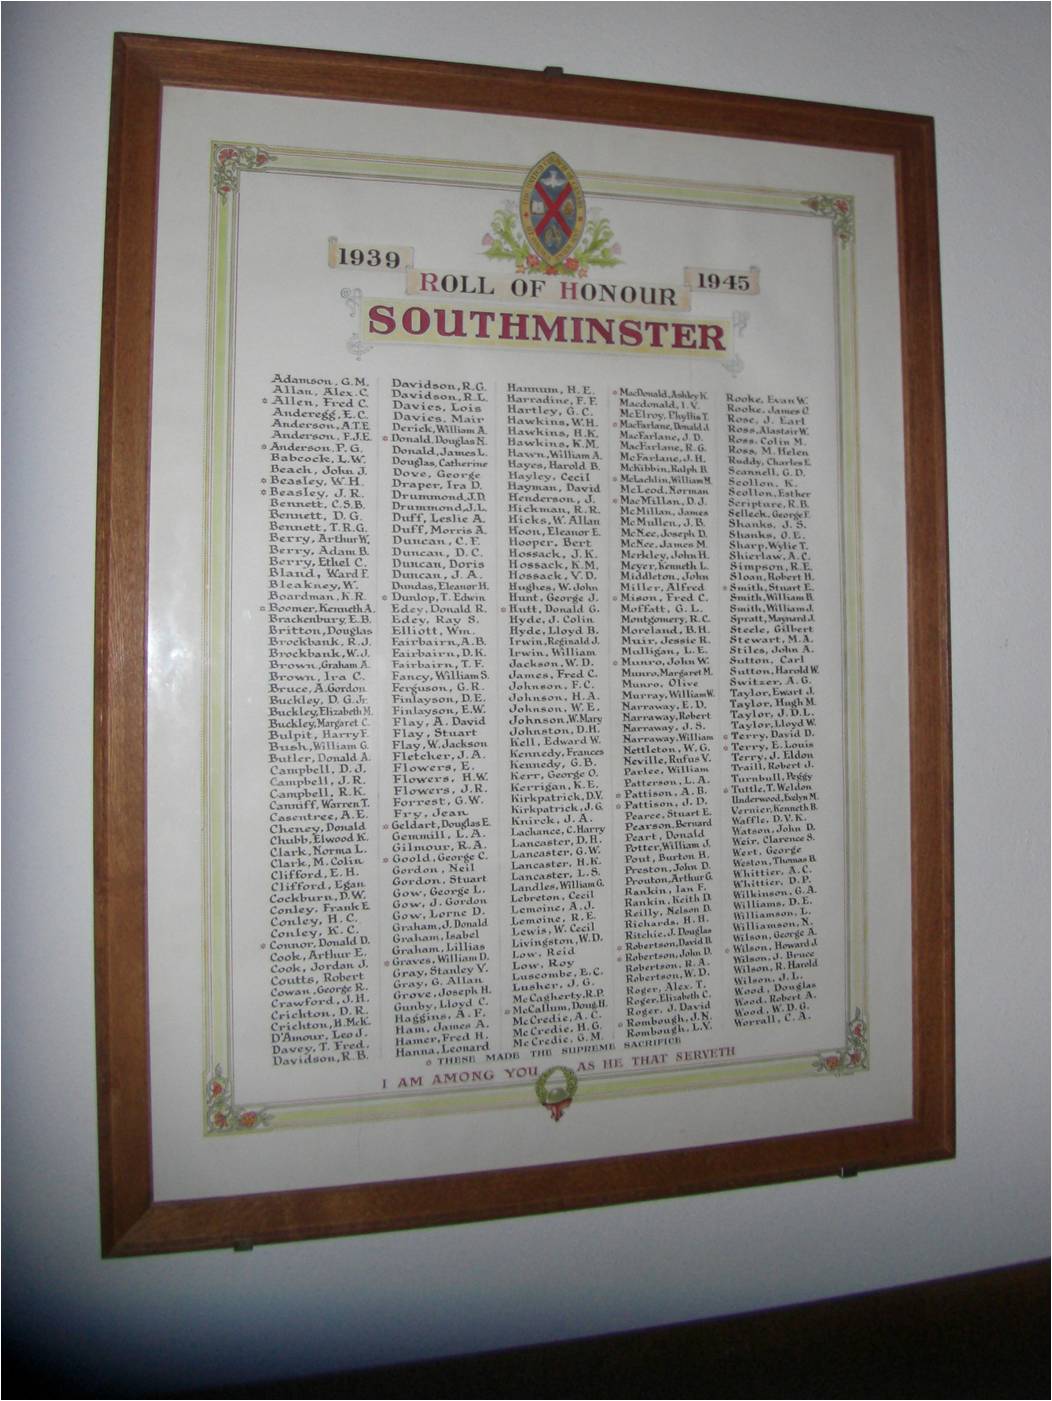 1939
1945
ROLL OF HONOUR
SOUTHMINSTER
Adamson, G.M.
Allan, Alex. C.
✡ Allen, Fred C.
Anderegg, E.C.
Anderson, A.T.E.
Anderson, F.J.E.
✡ Anderson, P.G.
Babcock, L.W.
Beach, John J.
✡ Beasley, W.H.
✡ Beasley, J.R.
Bennett, C.S.B.
Bennett, D.G.
Bennett, T.R.G.
Berry, Arthur W.
Berry, Adam B.
Berry, Ethel C.
Bland, Ward F.
Bleakney, W.
Boardman, K.R.
✡ Boomer, Kenneth A.
Brackenbury, E.B.
Britton, Douglas
Brockbank, R.J.
Brockbank, W.J.
Brown, Graham A.
Brown, Ira C.
Bruce, A. Gordon
Buckley, D.G. Jr.
Buckley, Elizabeth M.
Buckley, Margaret C.
Bulpit, Harry F.
Bush, William G.
Butler, Donald A.
Campbell, D.J.
Campbell, J.R.
Campbell, R.K.
Canniff, Warren T.
Casentree, A.E.
Cheney, Donald
Chubb, Elwood K.
Clark, Norma L.
Clark, M. Colin
Clifford, E.H.
Clifford, Egan
Cockburn, D.W.
Conley, Frank E.
Conley, H.C.
Conley, K.C.
✡ Connor, Donald D.
Cook, Arthur E.
Cook, Jordan J.
Coutts, Robert
Cowan, George R.
Crawford, J.H.
Crichton, D.R.
Crichton, H.McK.
D'Amour, Leo J.
Davey, T. Fred.
Davidson, R.B.
Davidson, R.G.
Davidson, R.L.
Davies, Lois
Davies, Mair
Derick, William A.
✡ Donald, Douglas N.
Donald, James L.
Douglas, Catherine
Dove, George
Draper, Ira D.
Drummond, J.D.
Drummond, J.L.
Duff, Leslie A.
Duff, Morris A.
Duncan, C.F.
Duncan, D.C.
Duncan, Doris
Duncan, J.A.
Dundas, Eleanor H.
✡ Dunlop, T. Edwin
Edey, Donald R.
Edey, Ray S.
Elliott, Wm.
Fairbairn, A.B.
Fairbairn, D.K.
Fairbairn, T.F.
Fancy, William S.
Ferguson, G.R.
Finlayson, D.E.
Finlayson, E.W.
Flay, A. David
Flay, Stuart
Flay, W. Jackson
Fletcher, J.A.
Flowers, E.
Flowers, H.W.
Flowers, J.R.
Forrest, G.W.
Fry, Jean
✡ Geldart, Douglas E.
Gemmill, L.A.
Gilmour, R.A.
✡ Goold, George C.
Gordon, Neil
Gordon, Stuart
Gow, George L.
Gow, J. Gordon
Gow, Lorne D.
Graham, J. Donald
Graham, Isabel
Graham, Lillias
✡ Graves, William D.
Gray, Stanley V.
Gray, G. Allan
Grove, Joseph H.
Gunby, Lloyd C.
Haggins, A.F.
Ham, James A.
Hamer, Fred H.
Hanna, Leonard
Hannum, H.E.
Harradine, F.F.
Hartley, G.C.
Hawkins, W.H.
Hawkins, H.K.
Hawkins, K.M.
Hawn, William A.
Hayes, Harold B.
Hayley, Cecil
Hayman, David
Henderson, J.
Hickman, R.R.
Hicks, W. Allan
Hoon, Eleanor E.
Hooper, Bert
Hossack, J.K.
Hossack, K.M.
Hossack, V.D.
Hughes, W. John
Hunt, George J.
✡ Hutt, Donald G.
Hyde, J. Colin
Hyde, Lloyd B.
Irwin, Reginald J.
Irwin, William
Jackson, W.D.
James, Fred C.
Johnson, F.C.
Johnson, H.A.
Johnson, W.E.
Johnson, W. Mary
Johnston, D.H.
Kell, Edward W.
Kennedy, Frances
Kennedy, G.B.
Kerr, George O.
Kerrigan, K.E.
Kirkpatrick, D.V.
Kirkpatrick, J.G.
Knirck, J.A.
Lachance, C. Harry
Lancaster, D.H.
Lancaster, G.W.
Lancaster, H.K.
Lancaster, L.S.
Landles, William G.
Lebreton, Cecil
Lemoine, A.J.
Lemoine, R.E.
Lewis, W. Cecil
Livingston, W.D.
Low, Reid
Low, Roy
Luscombe, E.C.
Lusher, J.G.
McCagherty, R.P.
✡ McCallum, Doug. H.
McCredie, A.C.
McCredie, H.G.
McCredie, G.M.
✡ MacDonald, Ashley K.
Macdonald, I.V.
McElroy, Phyllis T.
✡ MacFarlane, Donald J.
MacFarlane, J.D.
MacFarlane, R.G.
McFarlane, J.H.
McKibbin, Ralph B.
✡ McLachlin, William M.
McLeod, Norman
✡ MacMillan, D.J.
McMillan, James
McMullen, J.B.
McNee, Joseph D.
McNee, James M.
Merkley, John H.
Meyer, Kenneth L.
Middleton, John
Miller, Alfred
✡ Mison, Fred C.
Moffatt, G.L.
Montgomery, R.C.
Moreland, B.H.
Muir, Jessie R.
Mulligan, L.E.
✡ Munro, John W.
Munro, Margaret M.
Munro, Olive
Murray, William W.
Narraway, E.D.
Narraway, Robert
Narraway, J.S.
Narraway, William
Nettleton, W.G.
Neville, Rufus V.
Parlee, William
Patterson, L.A.
✡ Pattison, A.B.
✡ Pattison, J.D.
Pearce, Stuart E.
Pearson, Bernard
Peart, Donald
Potter, William J.
Pout, Burton H.
Preston, John D.
Prouton, Arthur G.
Rankin, Ian F.
Rankin, Keith D.
Reilly, Nelson D.
Richards, H.H.
Ritchie, J. Douglas
✡ Robertson, David B.
✡ Robertson, John D.
Robertson, R.A.
Robertson, W.D.
Roger, Alex. T.
Roger, Elizabeth C.
Roger, J. David
✡ Rombough, J.N.
Rombough, L.V.
Rooke, Evan W.
Rooke, James O.
Rose, J. Earl
Ross, Alastair W.
Ross, Colin M.
Ross, M. Helen
Ruddy, Charles E.
Scannell, G.D.
Scollon, K.
Scollon, Esther
Scripture, R.B.
Selleck, George F.
Shanks, J.S.
Shanks, O.E.
Sharp, Wylie T.
Shierlaw, A.C.
Simpson, R.E.
Sloan, Robert H.
✡ Smith, Stuart E.
Smith, William B.
Smith, William J.
Spratt, Maynard J.
Steele, Gilbert
Stewart, M.A.
Stiles, John A.
Sutton, Carl
Sutton, Harold W.
Switzer, A.G.
Taylor, Ewart J.
Taylor, Hugh M.
Taylor, J.D.L.
Taylor, Lloyd W.
✡ Terry, David D.
✡ Terry, E. Louis
Terry, J. Eldon
Traill, Robert J.
Turnbull, Peggy
✡ Tuttle, T. Weldon
Underwood, Evelyn M.
Vernier, Kenneth B.
Waffle, D.V.K.
Watson, John D.
Weir, Clarence S.
Wert, George
Weston, Thomas B.
Whittier, A.C.
Whittier, D.P.
Wilkinson, G.A.
Williams, D.E.
Williamson, L.
Williamson, N.
Wilson, George A.
✡ Wilson, Howard J.
Wilson, J. Bruce
Wilson, R. Harold
Wilson, J.L.
Wood, Douglas
Wood, Robert A.
Wood, W.D.G.
Worrall, C.A.
✡ THESE MADE THE SUPREME SACRIFICE
I AM AMONG YOU AS HE THAT SERVETH